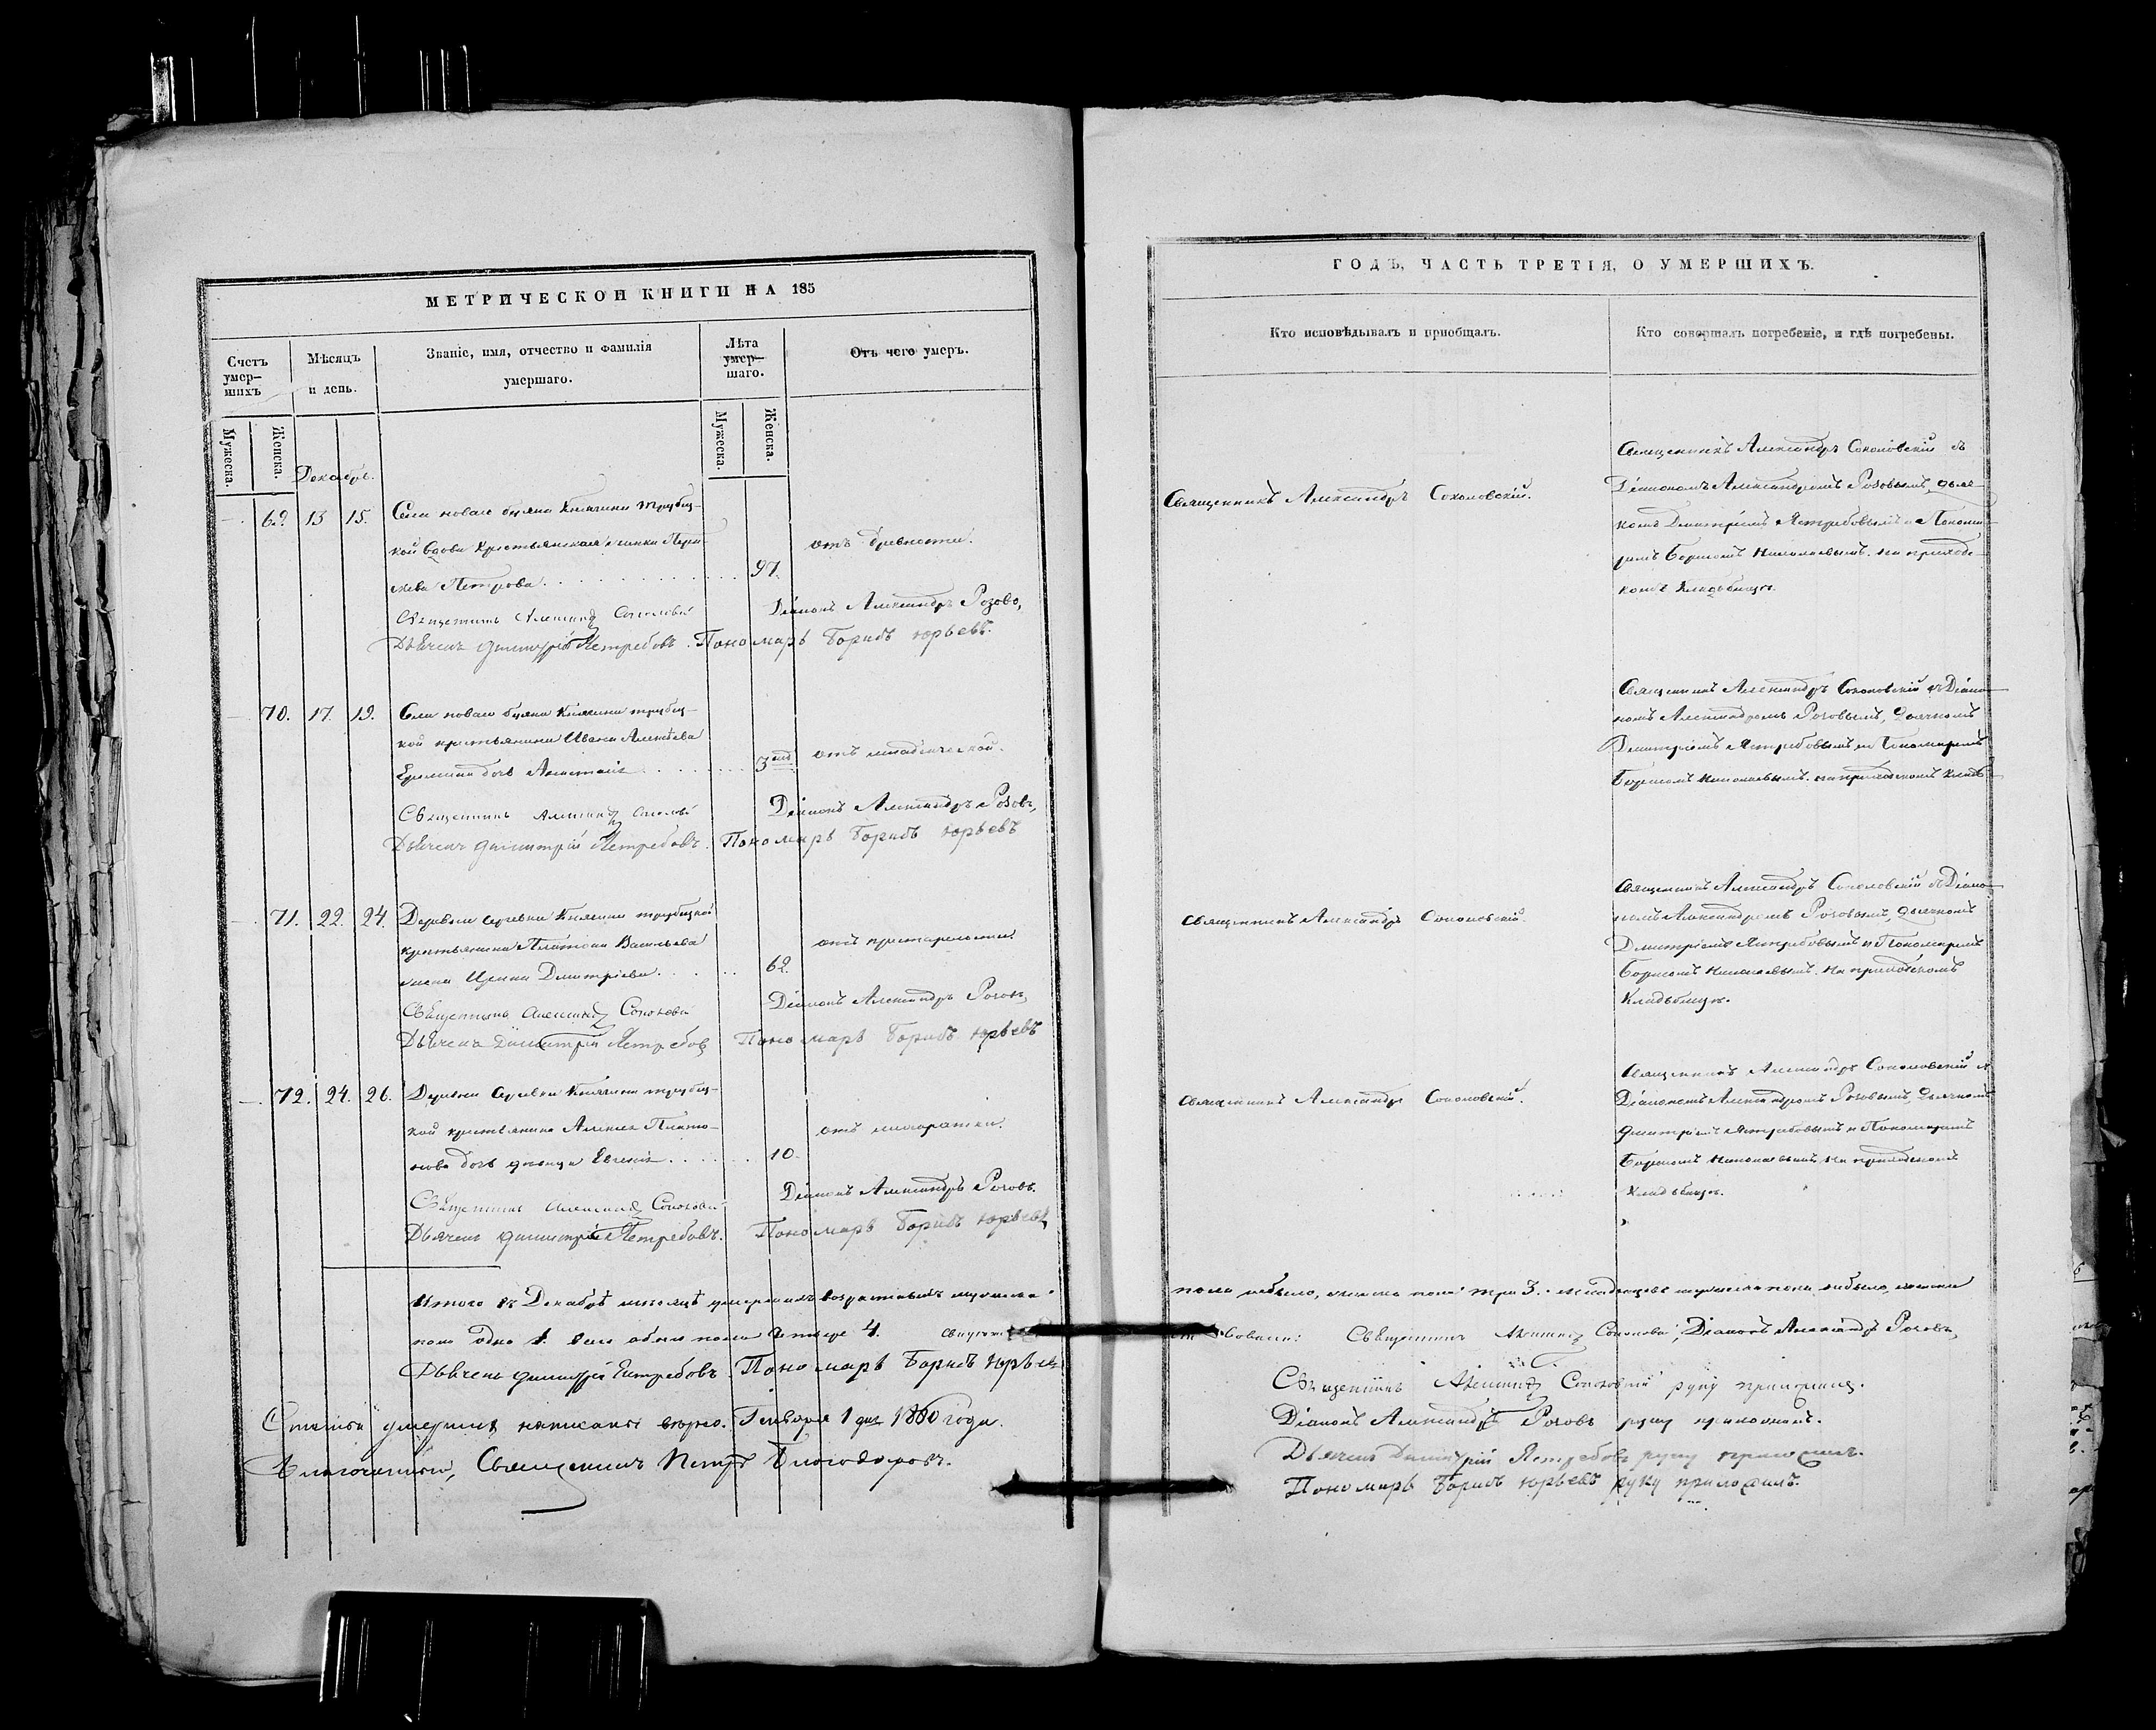 МЕТРИЧЕСКОЙ КНИГИ НА 185
Счетъ умер-
шихъ
Мѣсяцъ
и день.
Званіе, имя, отчество и фамилія
умершаго.
Лѣта
умер-
шаго.
Отъ чего умеръ.
Мужеска.
Женска.
Мужеска.
Женска.
Декабрь.
69. 13 15. Села новаго буяна Княгини Трубец-
кой вдова Крестьянская
Петрова 97.
отъ древности.
Священникъ Александръ Соколовскій
Діаконъ Александръ Розовъ,
Дьячекъ Димитрій Ястребовъ. Пономарь Борисъ Юрьевъ.
70. 17. 19. Села новаго буяна Княгини трубец-
кой крестьянина Ивана Алексѣева
дочь 3
отъ младенческой.
Священникъ Александръ Соколовскій
Діаконъ Александръ Розовъ,
Дьячекъ Димитрій Ястребовъ. Пономарь Борисъ Юрьевъ
71. 22. 24. Деревни Княгини трубецкой
крестьянина Платона Васильева
жена Ирина Дмитріева 62.
отъ престарелости.
Священникъ Александръ Соколовскій
Діаконъ Александръ Розовъ,
Дьячекъ Димитрій Ястребовъ Пономарь Борисъ Юрьевъ
72. 24. 26. Деревни Княгини трубец-
кой крестьянина Алексея Плато-
нова дочь девица 10.
отъ лихорадки.
Священникъ Александръ Соколовскій
Діаконъ Александръ Розовъ.
Дьячекъ Димитрій Ястребовъ. Пономарь Борисъ Юрьевъ
Итого въ Декабрѣ мѣсяцѣ умершихъ возрастныхъ мужеска
пола одна 1. всего обоего пола четыре 4.
Дьячекъ Димитрій Ястребовъ. Пономарь Борисъ Юрьевъ
Статьи умершихъ написаны верно. Генваря 1 дня 1860 года.
Благочинный, Священникъ Петръ Благодаровъ.
ГОДЪ, ЧАСТЬ ТРЕТІЯ, О УМЕРШИХЪ.
Кто исповѣдывалъ и пріобщалъ.
Кто совершалъ погребеніе, и гдѣ погребены.
Священникъ Александръ Соколовскій.
Священникъ Александръ Соколовскій съ
Діакономъ Александромъ Розовымъ, дьяч-
комъ Димитріемъ Ястребовымъ и Понома-
ремъ Борисомъ Николаевымъ. на приход-
комъ Кладбище.
Священникъ Александръ Соколовскій съ Діако-
номъ Александромъ Розовымъ, дьячкомъ
Димитріемъ Ястребовымъ и Пономаремъ
Борисомъ Николаевымъ. на приходскомъ кладб
Священникъ Александръ Соколовскій.
Священникъ Александръ Соколовскій съ Діако-
номъ Александромъ Розовымъ, дьячкомъ
Димитріемъ Ястребовымъ и Пономаремъ
Борисомъ Николаевымъ. на приходскомъ
Кладбище.
Священникъ Александръ Соколовскій.
Священникъ Александръ Соколовскій съ
Діакономъ Александромъ Розовымъ, Дьячкомъ
Димитріемъ Ястребовымъ и Пономаремъ
Борисомъ Николаевымъ на приходскомъ
Кладбище.
пола небыло, женска пола три 3. младенцевъ мужеска пола небыло, женска
Священникъ Александръ Соколовскій, Діаконъ Александръ Розовъ,
Священникъ Александръ Соколовскій руку приложилъ.
Діаконъ Александръ Розовъ руку приложилъ.
Дьячекъ Димитрій Ястребовъ руку приложилъ.
Пономарь Борисъ Юрьевъ руку приложилъ.